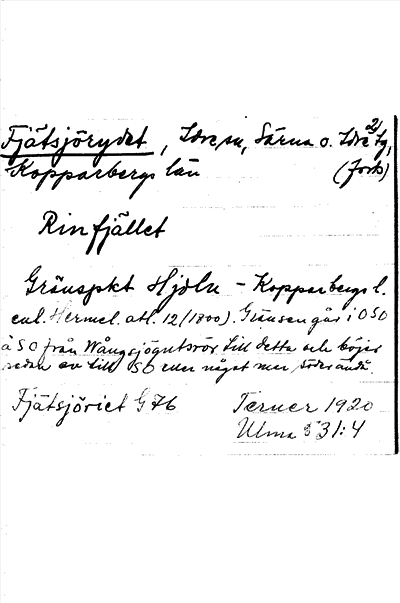 Fjätsjörydet, Idre sn, Särna o. Idre tg, 2)
Kopparbergs län (forts)
Rinfjället
Gränspkt Hjdln - Kopparbergs l.
enl. Hermel. atl. 12 (1800). Gränsen går i OSO
à SO från Wångsjögutsrör till detta och böjer
sedan av till SO eller något mer söderändå.
Fjätsjöriet G76 Terner 1920
Ulma 531:4